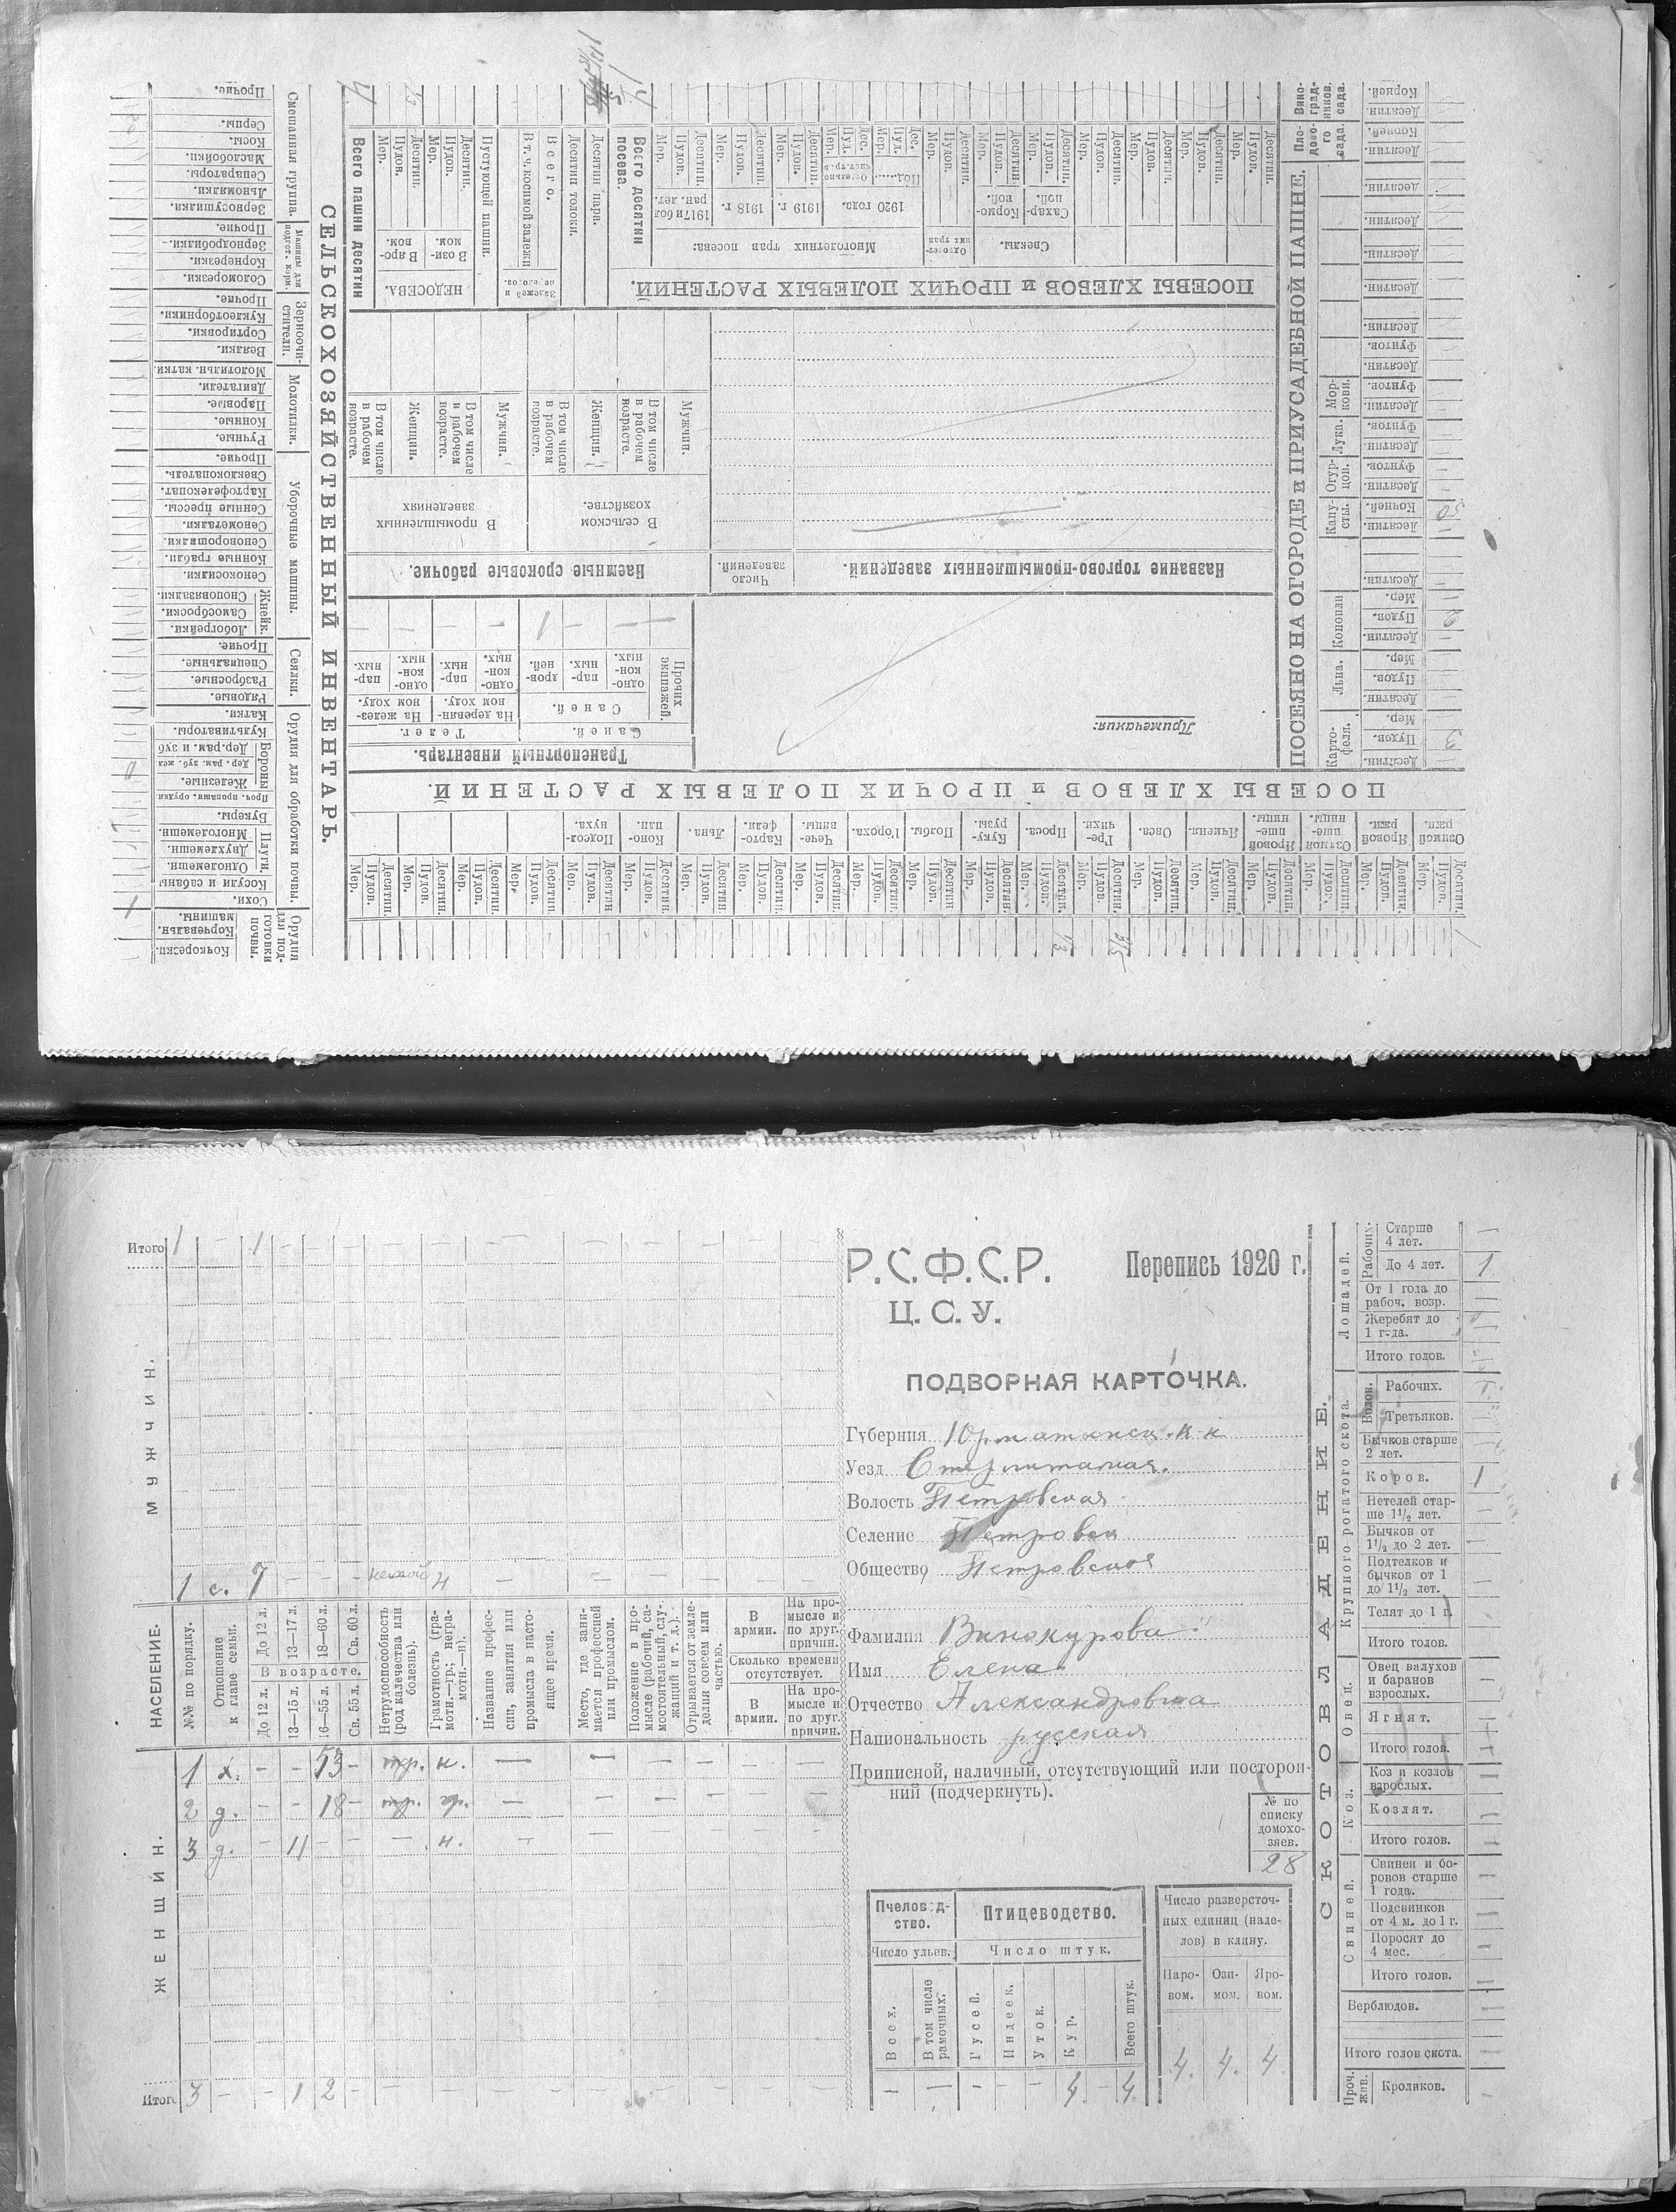 СЕЛЬСКОХОЗЯЙСТВЕННЫЙ ИНВЕНТАРЬ.
Орудия для подготовки почвы.
Кочкорезки.
Корчевальн. машины.
Орудия для обработки почвы.
Сохи.
1
Косули и сабаны
Плуги.
Одноlемешн.
Двухлемешн.
Многолемешн.
Букеры.
Проч. пропашн. орудия
Бороны
Железные.
Дер. рам. зуб. жел
Дер. рам. и зуб
Культиваторы.
Катки.
Сеялки.
Рядовые.
Разбросные.
Специальные.
Прочие.
Уборочные машины.
Жнейк.
Лобогрейки.
Самосброски.
Сноповязалки.
Сенокосилки.
Конные грабли.
Сеноворошилки.
Сенометалки.
Сенные прессы.
Картофелекопат.
Свеклокопатель.
Прочие.
Молотилки.
Ручные.
Конные.
Паровые.
Двигатели.
Молотильн. катки.
Зерноочистители.
Веялки.
Сортировки.
Куклеотборники.
Прочие.
Машины для подгот. корм.
Соломорезки.
Корнерезки.
Зернодробилки.
Прочие.
Смешанная группа.
Зерносушилки.
Льномялки.
Сепараторы.
Маслобойки.
Косы.
Серпы.
Прочие.
ПОСЕВЫ ХЛЕБОВ и ПРОЧИХ ПОЛЕВЫХ РАСТЕНИЙ.
Озимой ржи.
Яровой ржи.
Озимой пшеницы.
Яровой пшеницы.
Ячменя.
Овса.
Гречихи.
Проса.
Кукурузы.
Полбы.
Гороха.
Чечевицы
Картофеля
Льна.
Конопли
Подсолнуха.
Десятин.
Пудов.
Мер.
Транспортный инвентарь.
Саней.
Телег.
Прочих экипажей.
Саней.
На деревянном ходу.
На железном ходу.
одноконных.
парных.
дровней.
1
Примечания:
Название торгово-промышленных заведений.
Число заведений.
Наемные сроковые рабочие.
В сельском хозяйстве.
В промышленных заведениях
Мужчин.
В том числе в рабочем возрасте.
Женщин.
В том числе в рабочем возрасте.
ПОСЕВЫ ХЛЕБОВ и ПРОЧИХ ПОЛЕВЫХ РАСТЕНИЙ.
Свеклы.
Сахарной.
Кормовой.
Однолетних трав
Многолетних трав посева:
1920 года.
1919 г.
1918 г
1917 и бол ран. лет.
Всего десятин посева.
Десятин пара.
Десятин толоки.
Залежей и перелогов.
Всего.
В т. ч. косимой залежи
Пустующей пашни.
НЕДОСЕВА.
В озимом
В яровом.
Всего пашни десятин
ПОСЕЯНО НА ОГОРОДЕ и ПРИУСАДЕБНОЙ ПАШНЕ.
Картофеля.
Льна.
Конопли
Капусты.
Огурцов.
Лука.
Моркови.
Плодового сада.
Виноградников. сада.
3
2
50
Р.С.Ф.С.Р.
Перепись 1920 г.
Ц.С.У.
ПОДВОРНАЯ КАРТОЧКА.
Губерния Юрматынск. к-н
Уезд Стерлитамак.
Волость Петровская
Селение Петровск
Общество Петровское
Фамилия Винокурова
Имя Елена
Отчество Александровна
Национальность русская
Приписной, наличный, отсутствующий или посторонний (подчеркнуть).
№ по списку домохозяев.
28
Пчеловодство.
Число ульев.
Всех.
В том числе рамочных.
Птицеводство.
Число штук.
Гусей.
Индеек.
Уток.
Кур.
Всего штук.
4 - 4.
Число разверсточных единиц (наделов) в клину.
Паровом.
Озимом.
Яровом.
4. 4. 4
НАСЕЛЕНИЕ.
МУЖЧИН.
Итого 1 - 1
1 с. 7 - - - немой н
№№ по порядку.
Отношение к главе семьи.
До 12 л.
13—17 л.
18—60 л.
Св. 60 л.
В возрасте.
До 12 л.
13—15 л.
16—55 л.
Св. 55 л.
Нетрудоспособность (род калечества или болезнь).
Грамотность (грамотн.—гр.; неграмотн.—н).
Название профессии, занятия или промысла в настоящее время.
Место, где занимается профессией или промыслом.
Положение в промысле (рабочий, самостоятельный, служащий и т. д.).
Отрывается от земледелия совсем или частью.
В армии.
На промысле и по друг. причин.
Сколько времени отсутствует.
В армии.
На промысле и по друг. причин.
ЖЕНЩИН.
1 х. - - 53 - тр. н.
2 д. - - 18 - тр. гр.
3 д. - 11 - - - н.
Итого 3 - - 1 2 -
СКОТОВЛАДЕНИЕ.
Лошадей.
Рабочих.
Старше 4 лет.
До 4 лет. 1
От 1 года до рабоч. возр.
Жеребят до 1 года.
Итого голов.
Крупного рогатого скота.
Волов.
Рабочих.
Третьяков.
Бычков старше 2 лет.
Коров. 1
Нетелей старше 1½ лет.
Бычков от 1½ до 2 лет.
Подтелков и бычков от 1 до 1½ лет.
Телят до 1 г.
Итого голов.
Овец.
Овец валухов и баранов взрослых.
Ягнят.
Итого голов.
Коз.
Коз и козлов взрослых.
Козлят.
Итого голов.
Свиней.
Свиней и боровов старше 1 года.
Подсвинков от 4 м. до 1 г.
Поросят до 4 мес.
Итого голов.
Верблюдов.
Итого голов скота.
Проч. жив.
Кроликов.